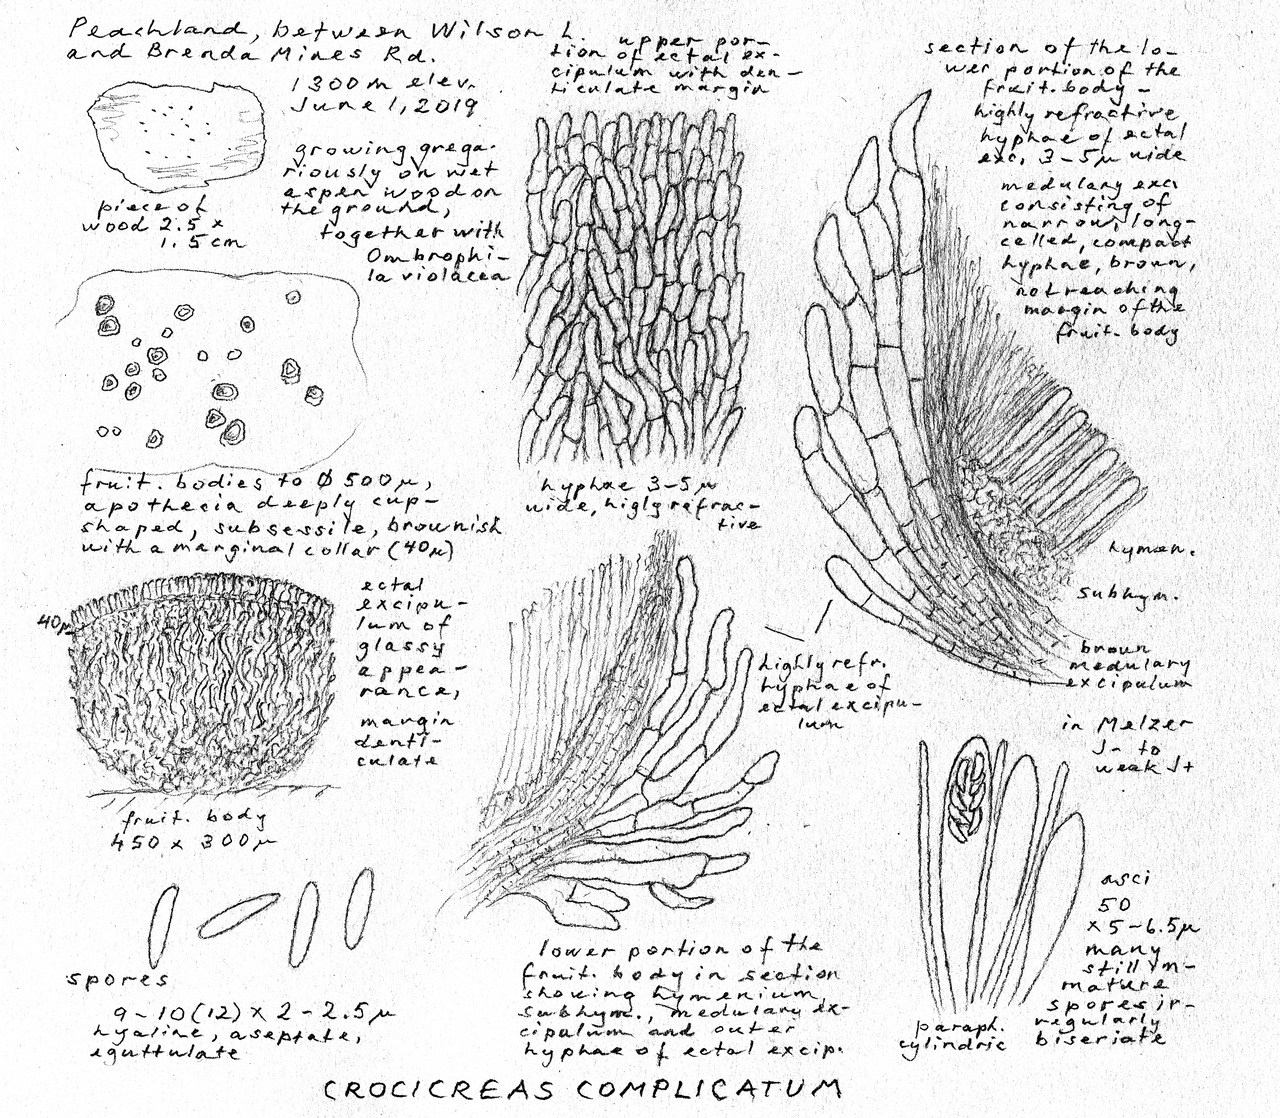 Peachland, between Wilson L.
and Brenda Mines Rd.
1300 m elev.
June 1, 2019
growing grega-
riously on wet
aspen wood on
the ground,
together with
Ombrophi-
la violacea
piece of
wood 2.5 x
1.5 cm
fruit. bodies to Ø 500 µ,
apothecia deeply cup-
shaped, subsessile, brownish
with a marginal collar (40µ)
40µ
ectal
excipu-
lum of
glassy
appea-
rance,
margin
denti-
culate
fruit. body
450 x 300 µ
spores
9-10(12) x 2-2.5 µ
hyaline, aseptate,
eguttulate
upper por-
tion of ectal ex-
cipulum with den-
ticulate margin
hyphae 3-5 µ
wide, higly refrac-
tive
highly refr.
hyphae of
ectal excipu-
lum
lower portion of the
fruit. body in section
showing hymenium,
subhym., medulary ex-
cipulum and outer
hyphae of ectal excip.
section of the lo-
wer portion of the
fruit. body -
highly refractive
hyphae of ectal
exc. 3-5µ wide
medulary exc.
consisting of
narrow, long-
celled, compact
hyphae, brown,
not reaching
margin of the
fruit. body
hymen.
subhym.
brown
medulary
excipulum
in Melzer
J- to
weak J+
asci
50
x 5-6.5µ
many
still im-
mature
spores ir-
regularly
biseriate
paraph.
cylindric
CROCICREAS COMPLICATUM